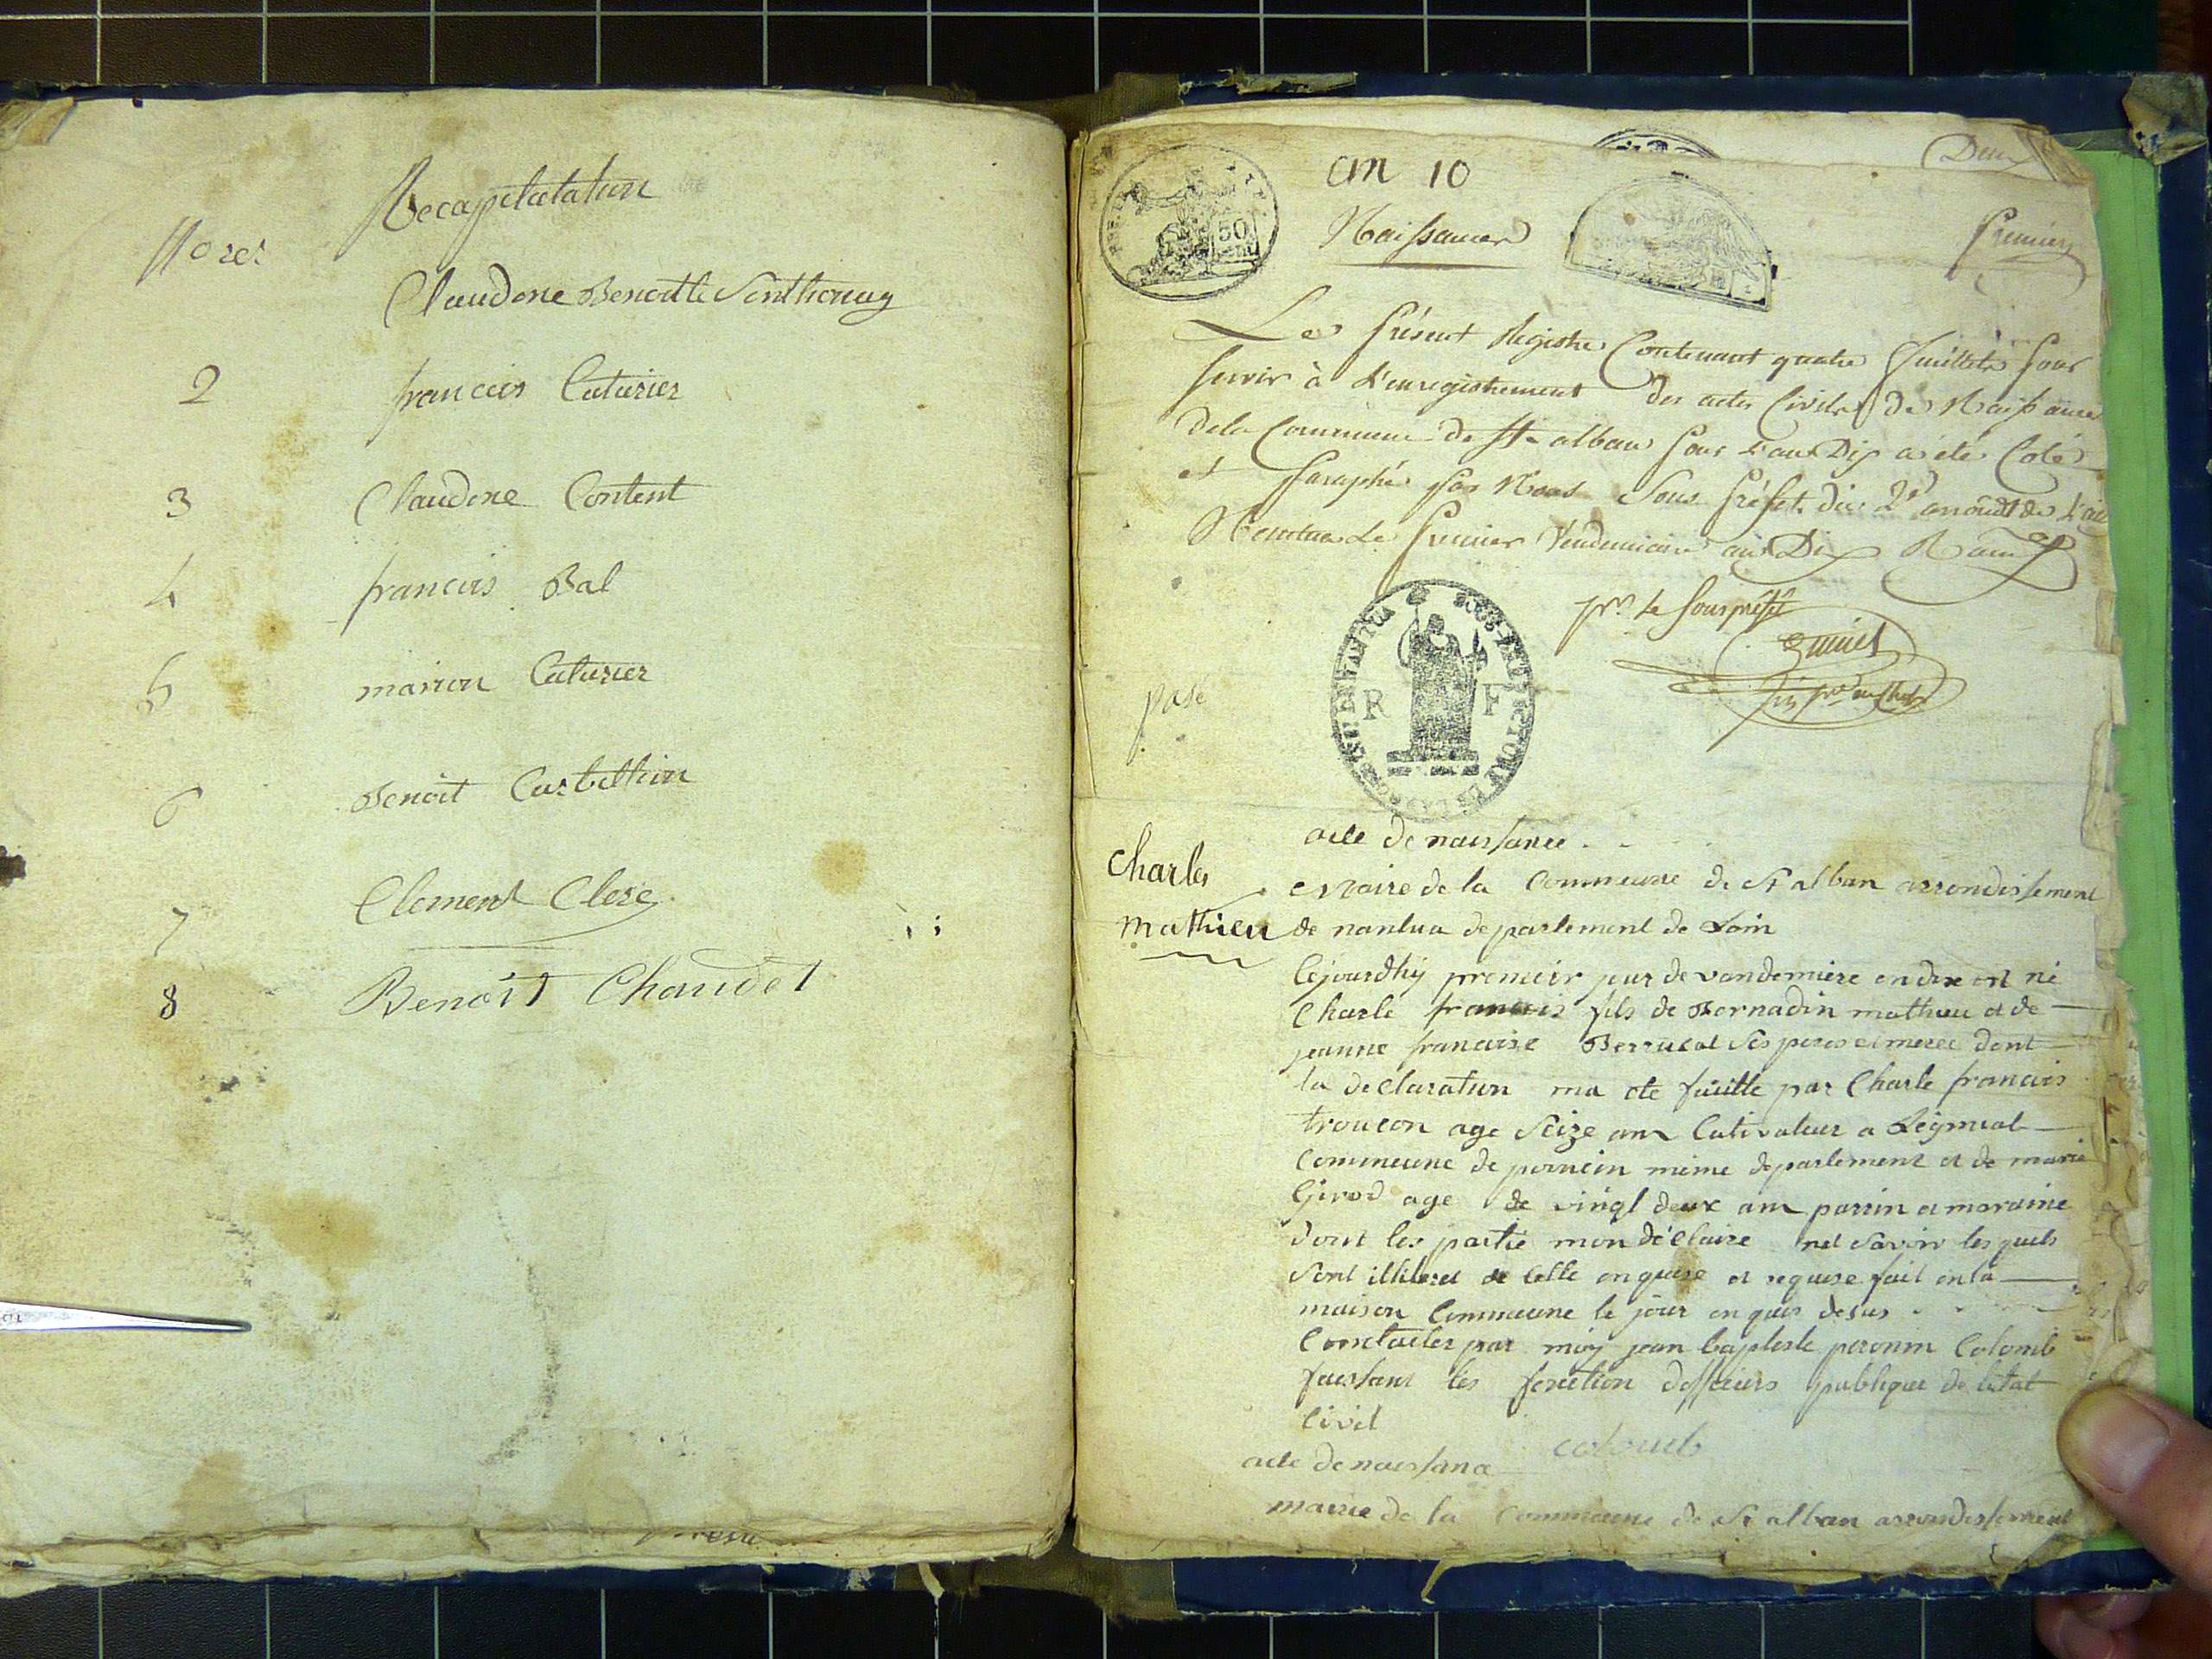 Recapitulatiun
Claudine Benoitte
2 francois Cuturier
3 Claudine Content
4 francois Bal
5 marion Cuturier
6 Benoit
7 Clement Clerc
8 Benoit Chaudet
an 10
Deux
50
Naissances
Premier
Le Présent Registre Contenant quatre feuillets pour
servir à L'enregistrement des actes Civils de Naissance
de la Commune de St alban pour L'an Dix a été Coté
et Paraphé par Nous Sous Préfet du 2e arrondt de L'ain
Nantua Le Premier Vendemiaire an Dix
pr. le Sous préfet
R F
acte de naissance
Charles
mathieu
mairie de la Commeune de St alban arrondissement
de nantua departement de Lain
Cejourdhy premeir jour de vandemiere an dix est né
Charle francois fils de Bernadin mathieu et de
jeanne francoise ses peres et merre dont
la declaratiun ma ete faiitte par Charle francois
troucon age seize ans Cutivateur a
Commeune de poncin méme departement et de marie
Girod age de vingt deux ans parrin et maraine
dont les partie mon déClaire net savoir les quels
sont illiteret de Celle enquise et requise fait en la
maison Commeune le jour en que desus
Constater par moy jean baptiste peronin Colomb
faissant les fonction defficiers publique de letat
Civil
colomb
acte de naissance
mairie de la Commeune de St alban arrondissement